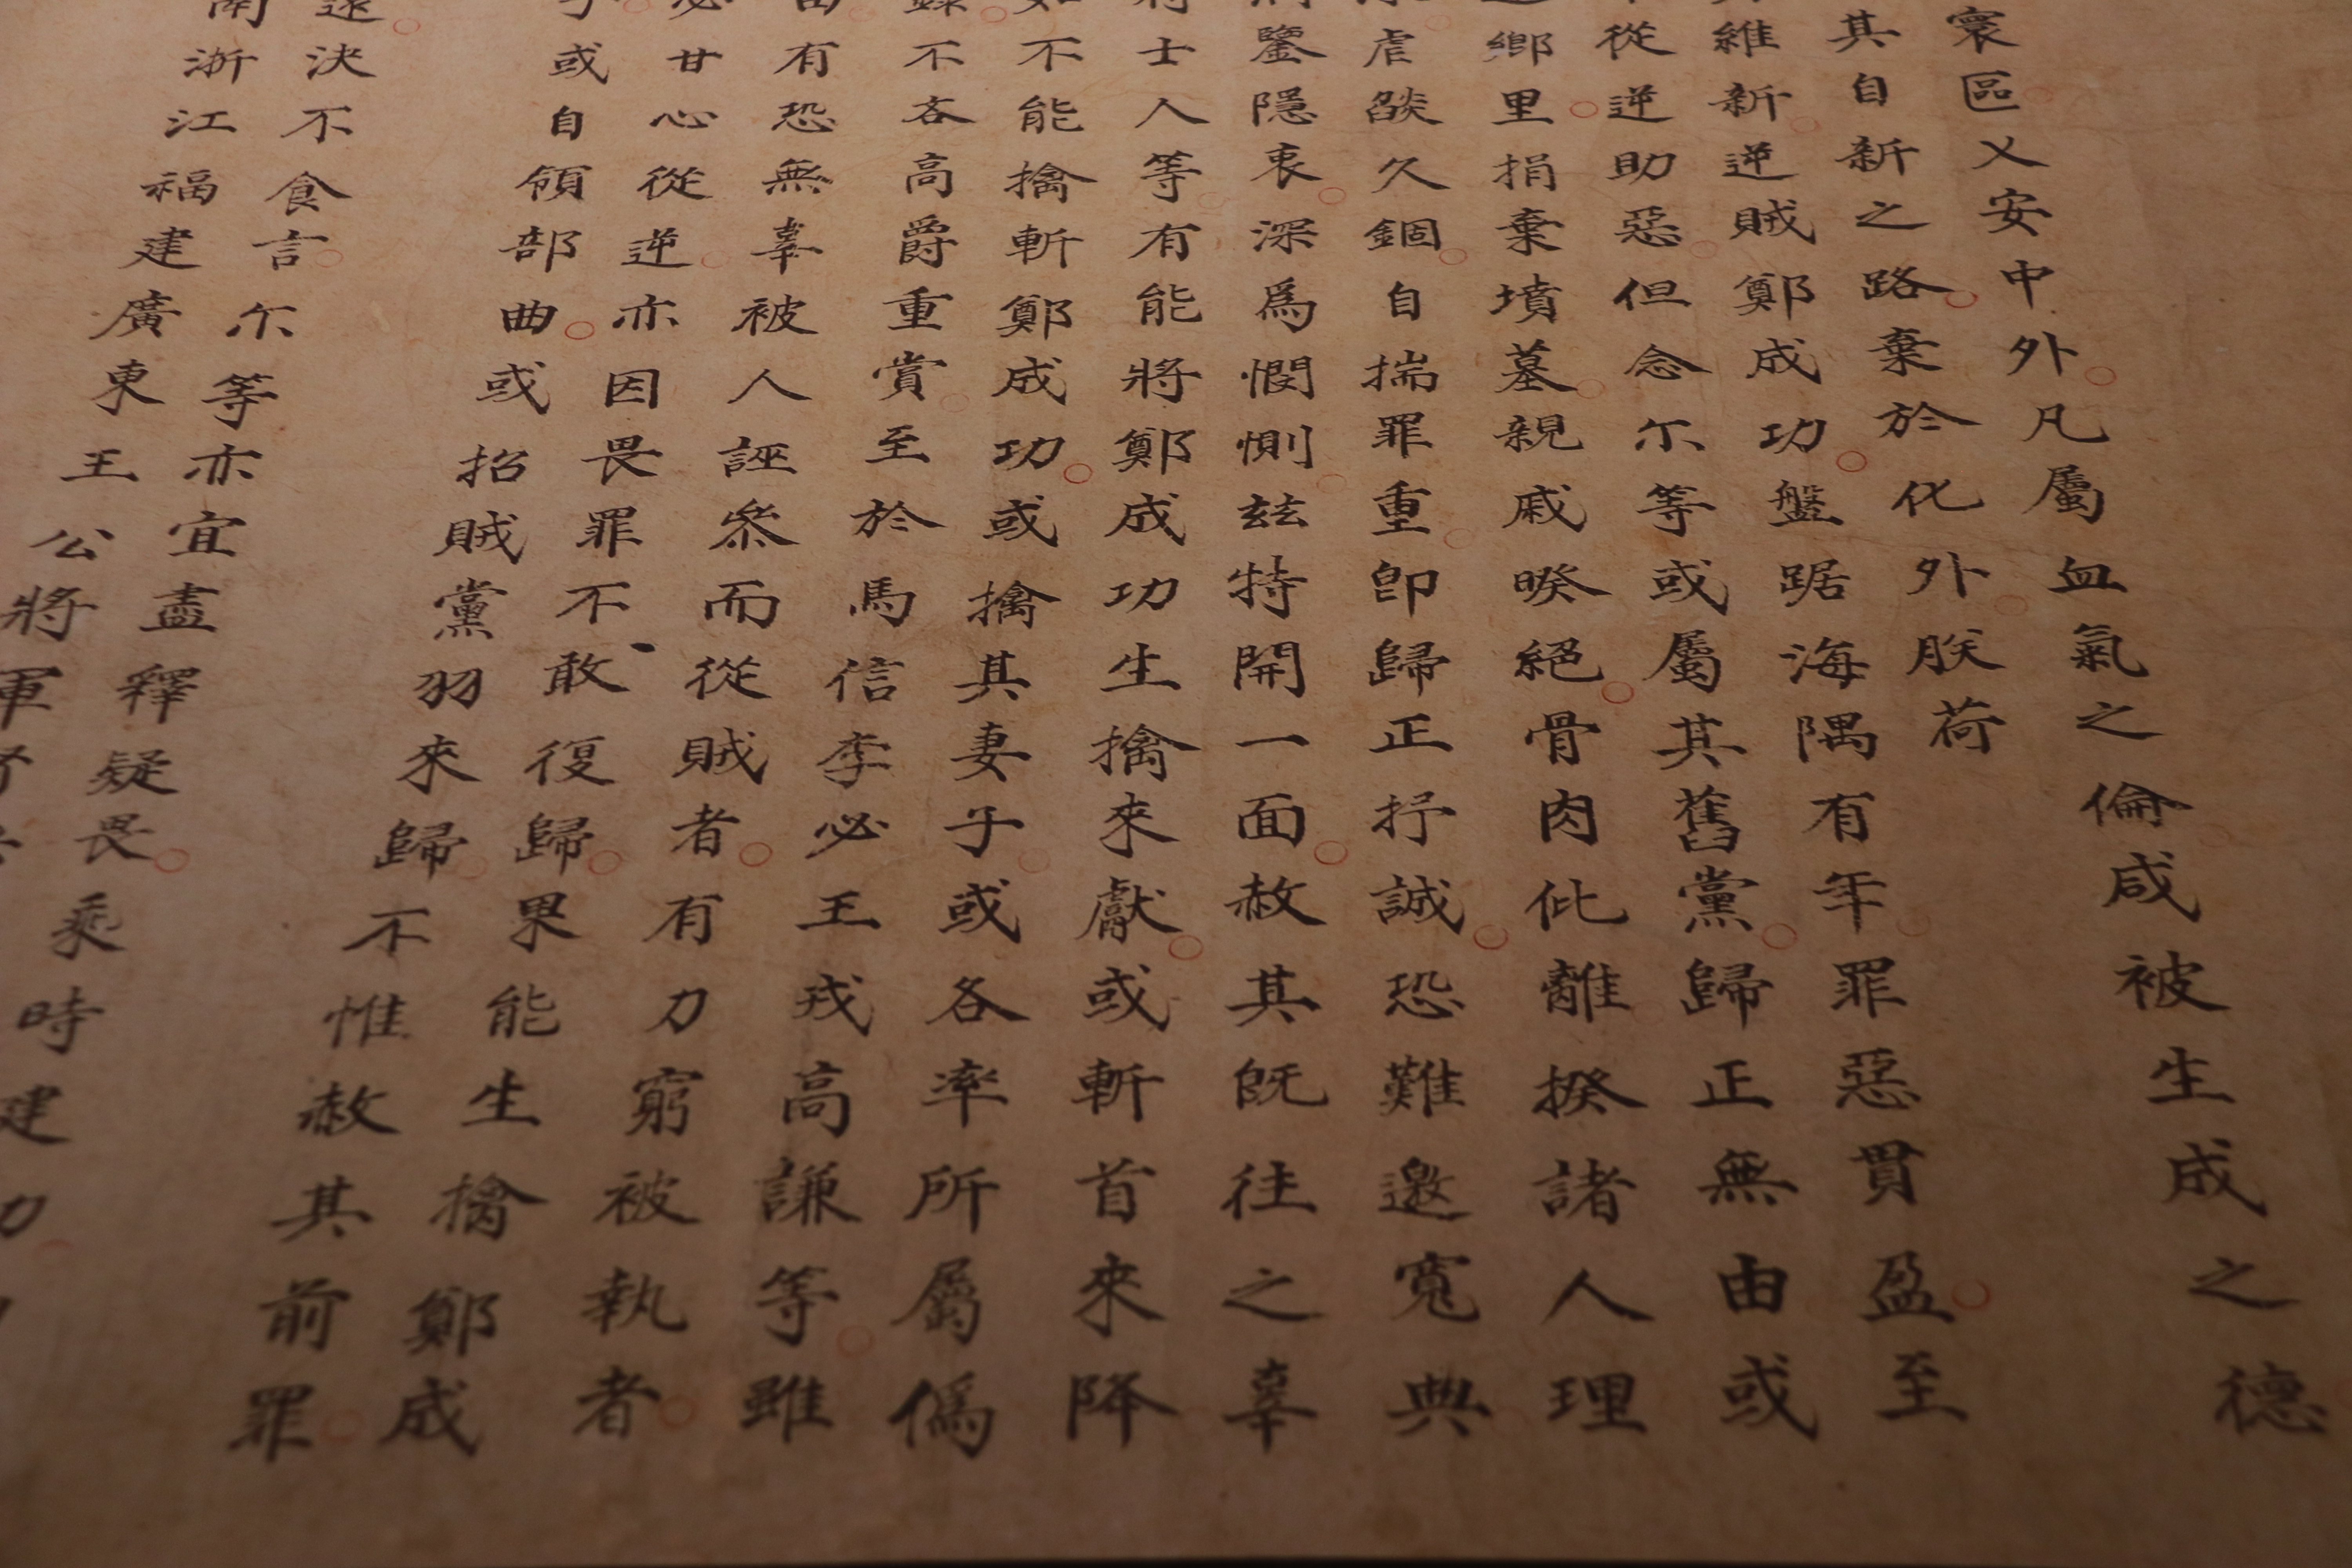 寰區乂安中外凡屬血氣之倫咸被生成之德
其自新之路棄於化外朕荷
維新逆賊鄭成功盤踞海隅有年罪惡貫盈至
從逆助惡但念尔等或屬其舊黨歸正無由或
鄉里捐棄墳墓親戚暌絕骨肉仳離揆諸人理
虐燄久錮自揣罪重即歸正抒誠恐難邀寬典
鑒隱衷深爲憫惻玆特開一面赦其旣往之辜
士人等有能將鄭成功生擒來獻或斬首來降
不能擒斬鄭成功或擒其妻子或各率所屬僞
不吝高爵重賞至於馬信李必王戎高謙等雖
有恐無辜被人誣枲而從賊者有力窮被執者
甘心從逆亦因畏罪不敢復歸果能生擒鄭成
或自領部曲或招賊黨羽來歸不惟赦其前罪
決不食言尔等亦宜盡釋疑畏乘時建
浙江福建廣東王公將軍